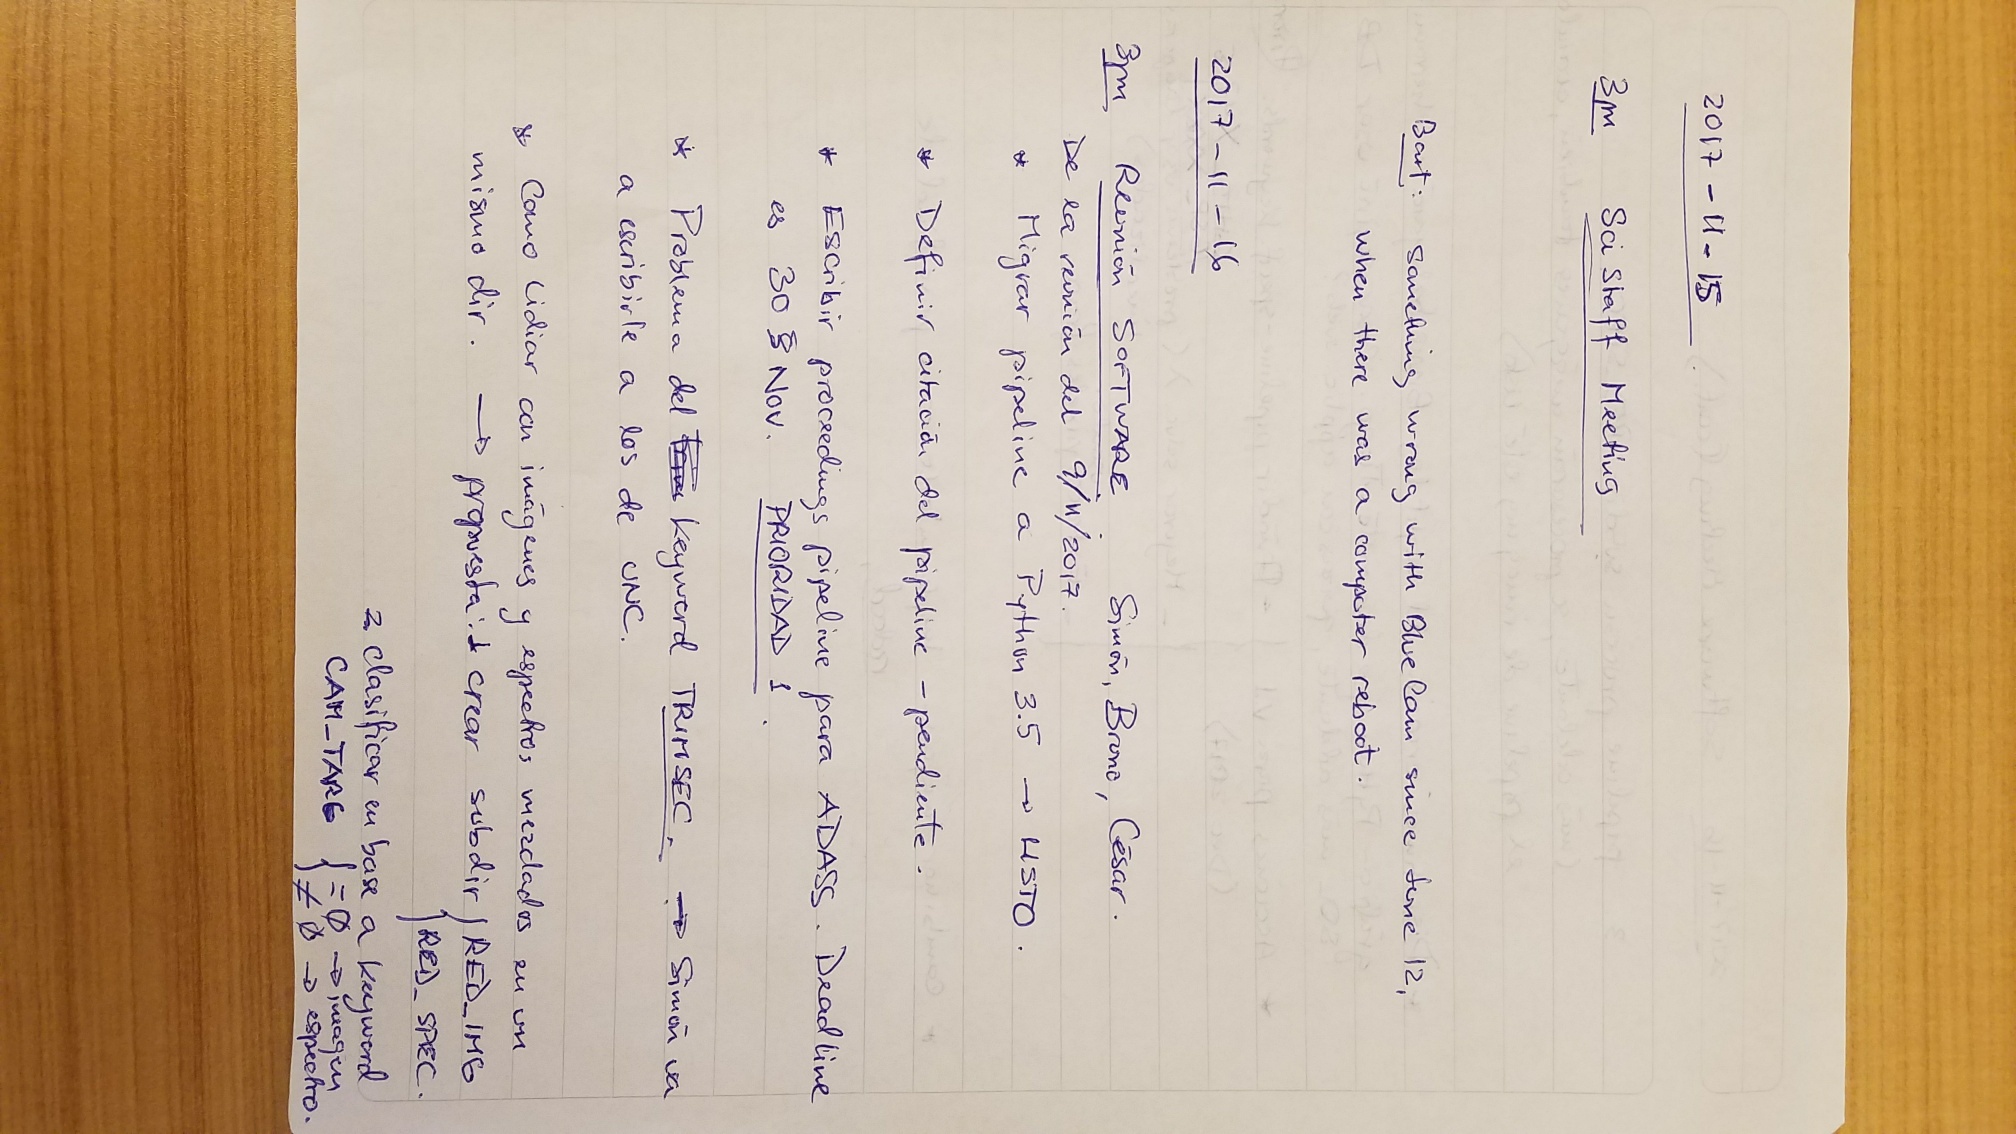 2017-11-15
3pm Sci Staff Meeting
Bart: something wrong with Blue Cam since June 12,
when there was a computer reboot.
2017-11-16
3pm Reunión SOFTWARE Simón, Bruno, César.
De la reunión del 9/11/2017.
* Migrar pipeline a Python 3.5 → HSTO.
* Definir citación del pipeline - pendiente.
* Escribir proceedings pipeline para ADASS. Deadline
es 30 Nov. PRIORIDAD 1.
* Problema del Keyword TRIMSEC. → Simón va
a escribirle a los de UNC.
* Como lidiar con imágenes y espectros mezclados en un
mismo dir. → propuesta: 1 crear subdir { RED_IMG
RED_SPEC.
2. clasificar en base a keyword
CAM_TARG { = Ø → imagen
≠ Ø → espectro.